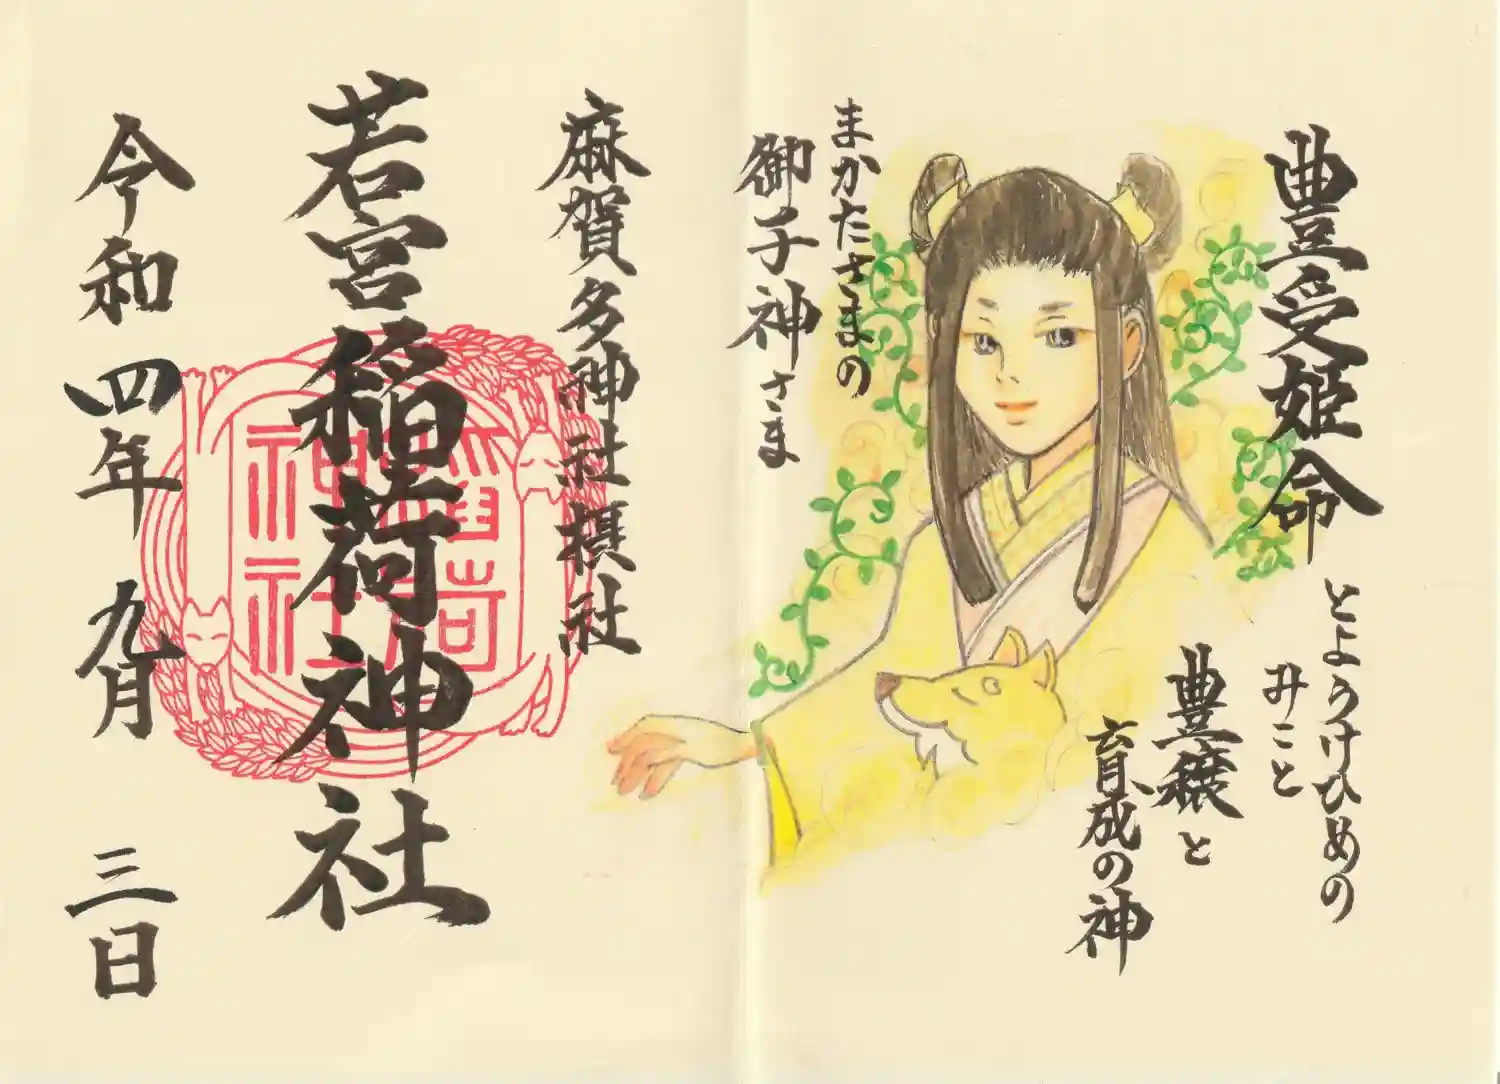 豊受姫命
とようけひめの
みこと
豊穣と
育成の神
まかたさまの
御子神さま
麻賀多神社摂社
若宮稲荷神社
令和四年九月三日